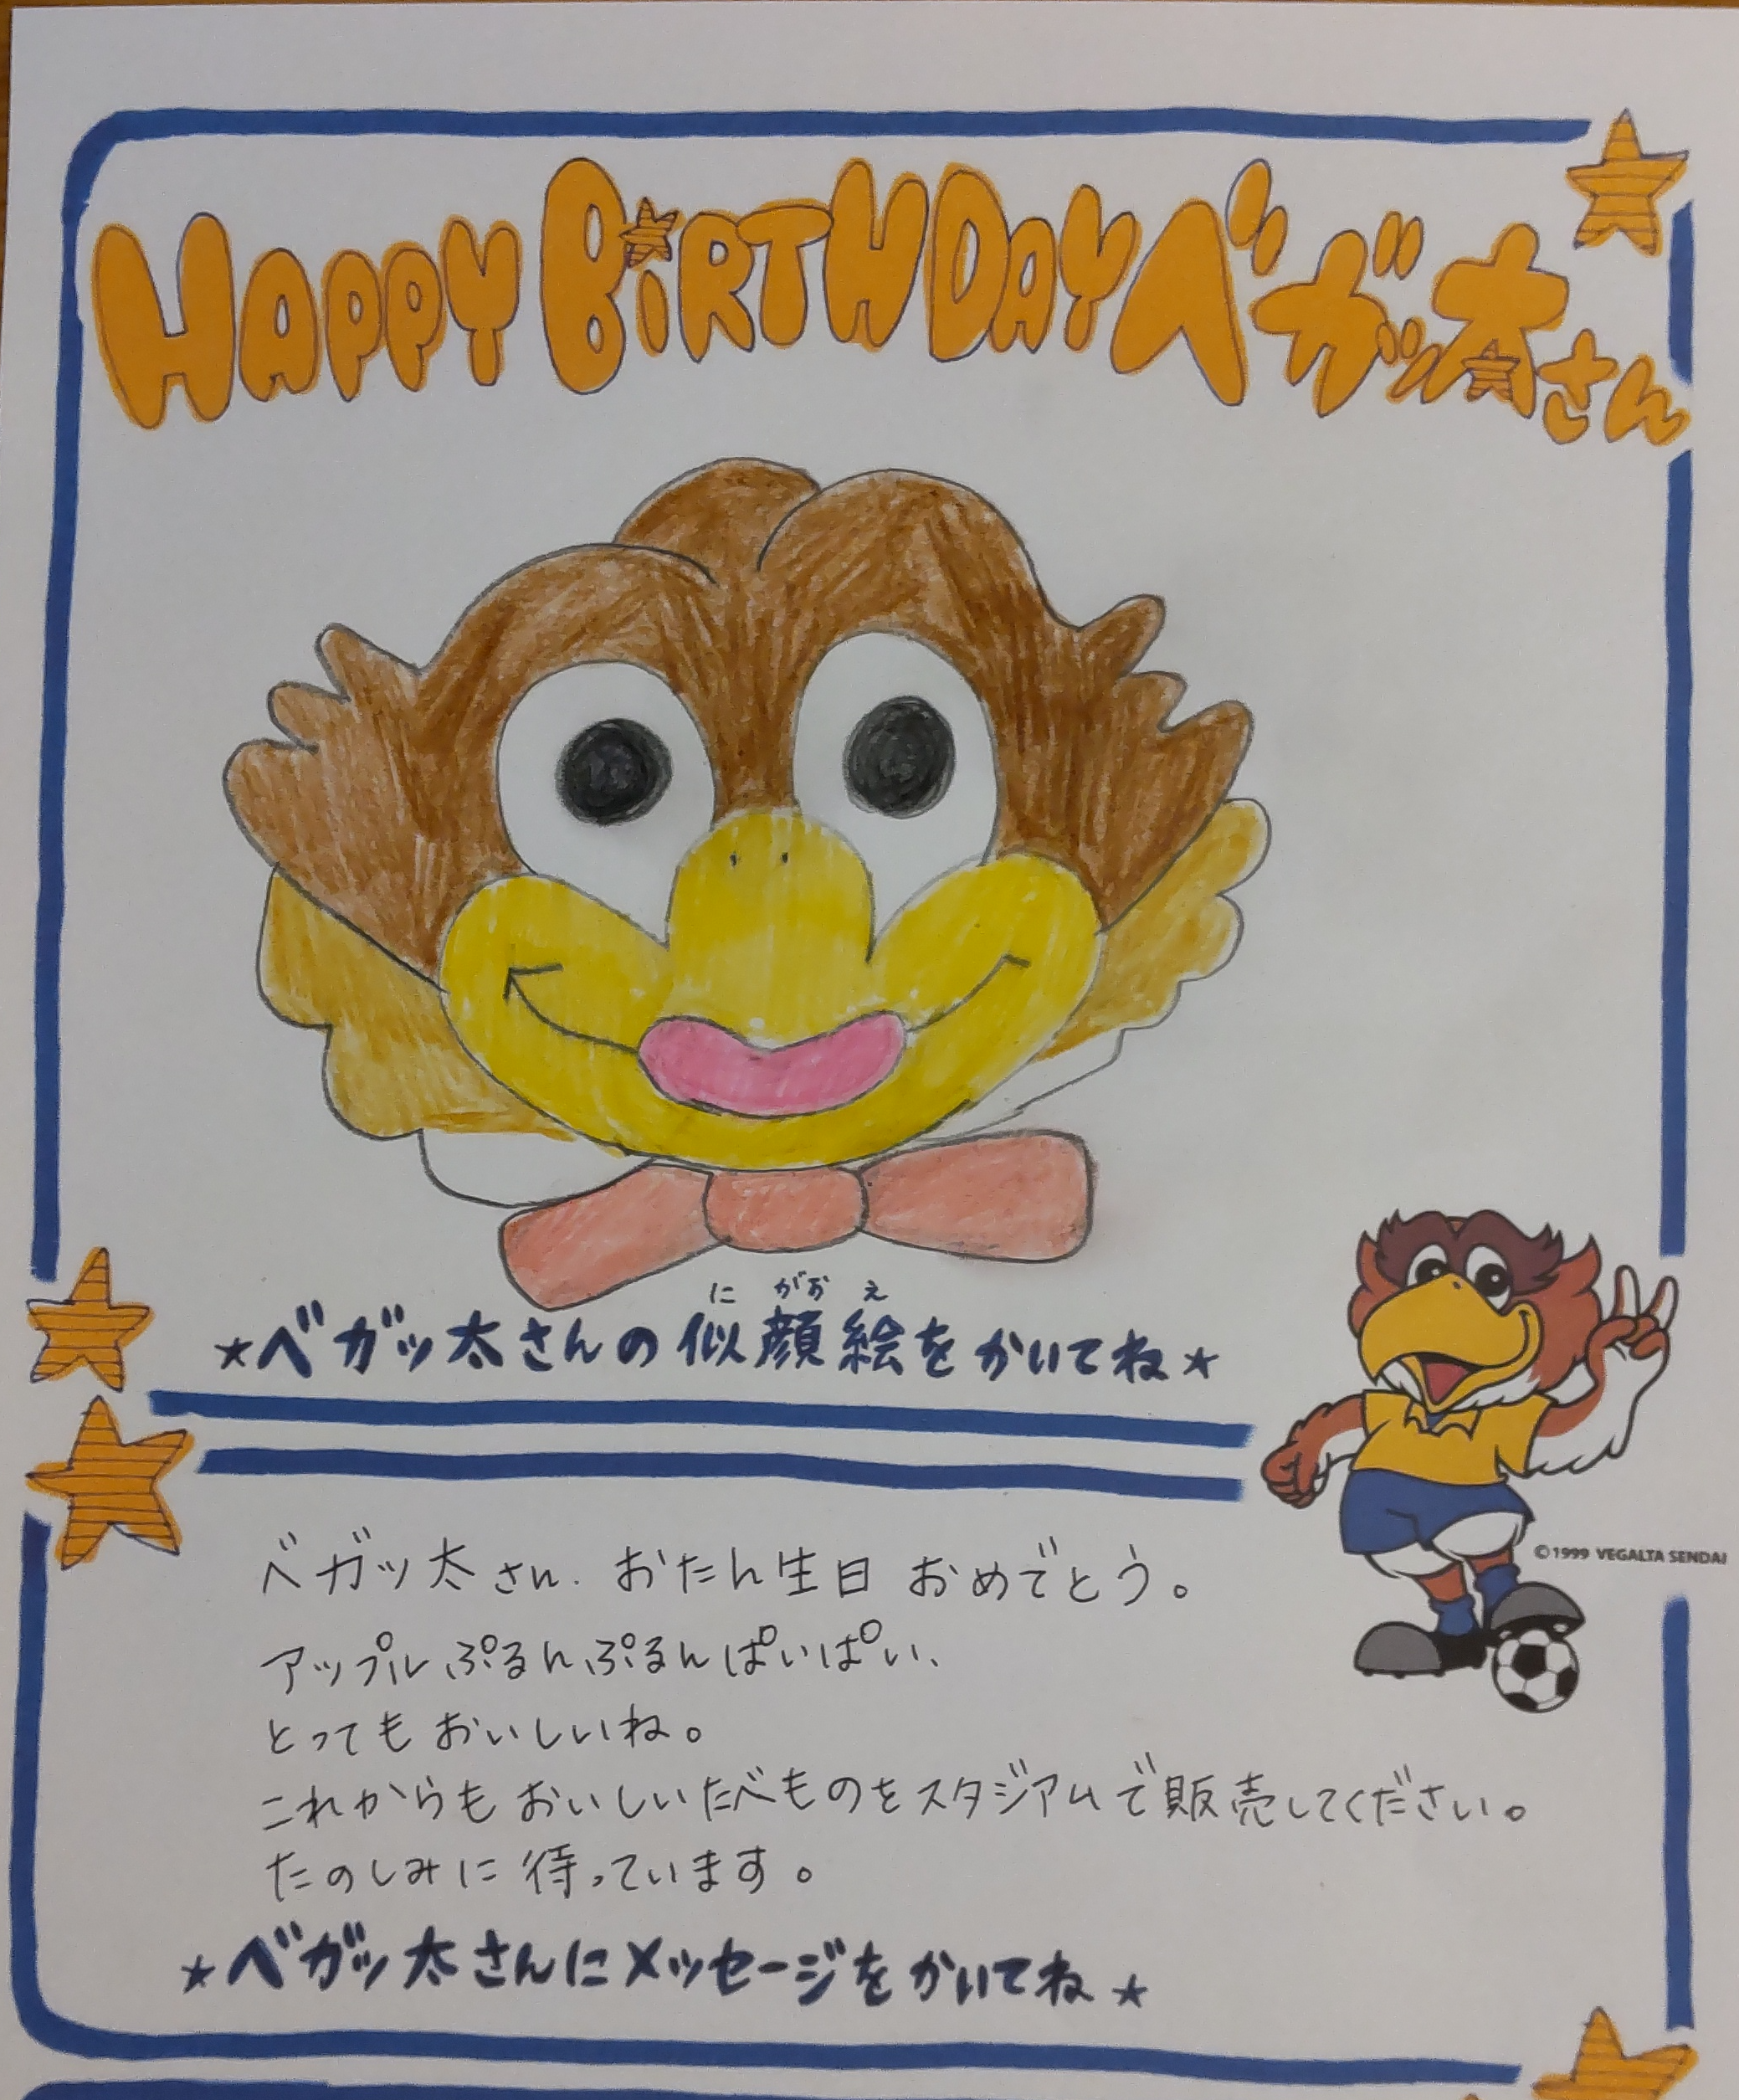 HAPPY BiRTHDAY ベガッ太さん
に がお え
★ベガッ太さんの似顔絵をかいてね★
©1999 VEGALTA SENDAI
ベガッ太さん. おたん生日 おめでとう。
アップルぷるんぷるんぱいぱい、
とってもおいしいね。
これからもおいしいたべものをスタジアムで販売してください。
たのしみに待っています。
★ベガッ太さんにメッセージをかいてね★